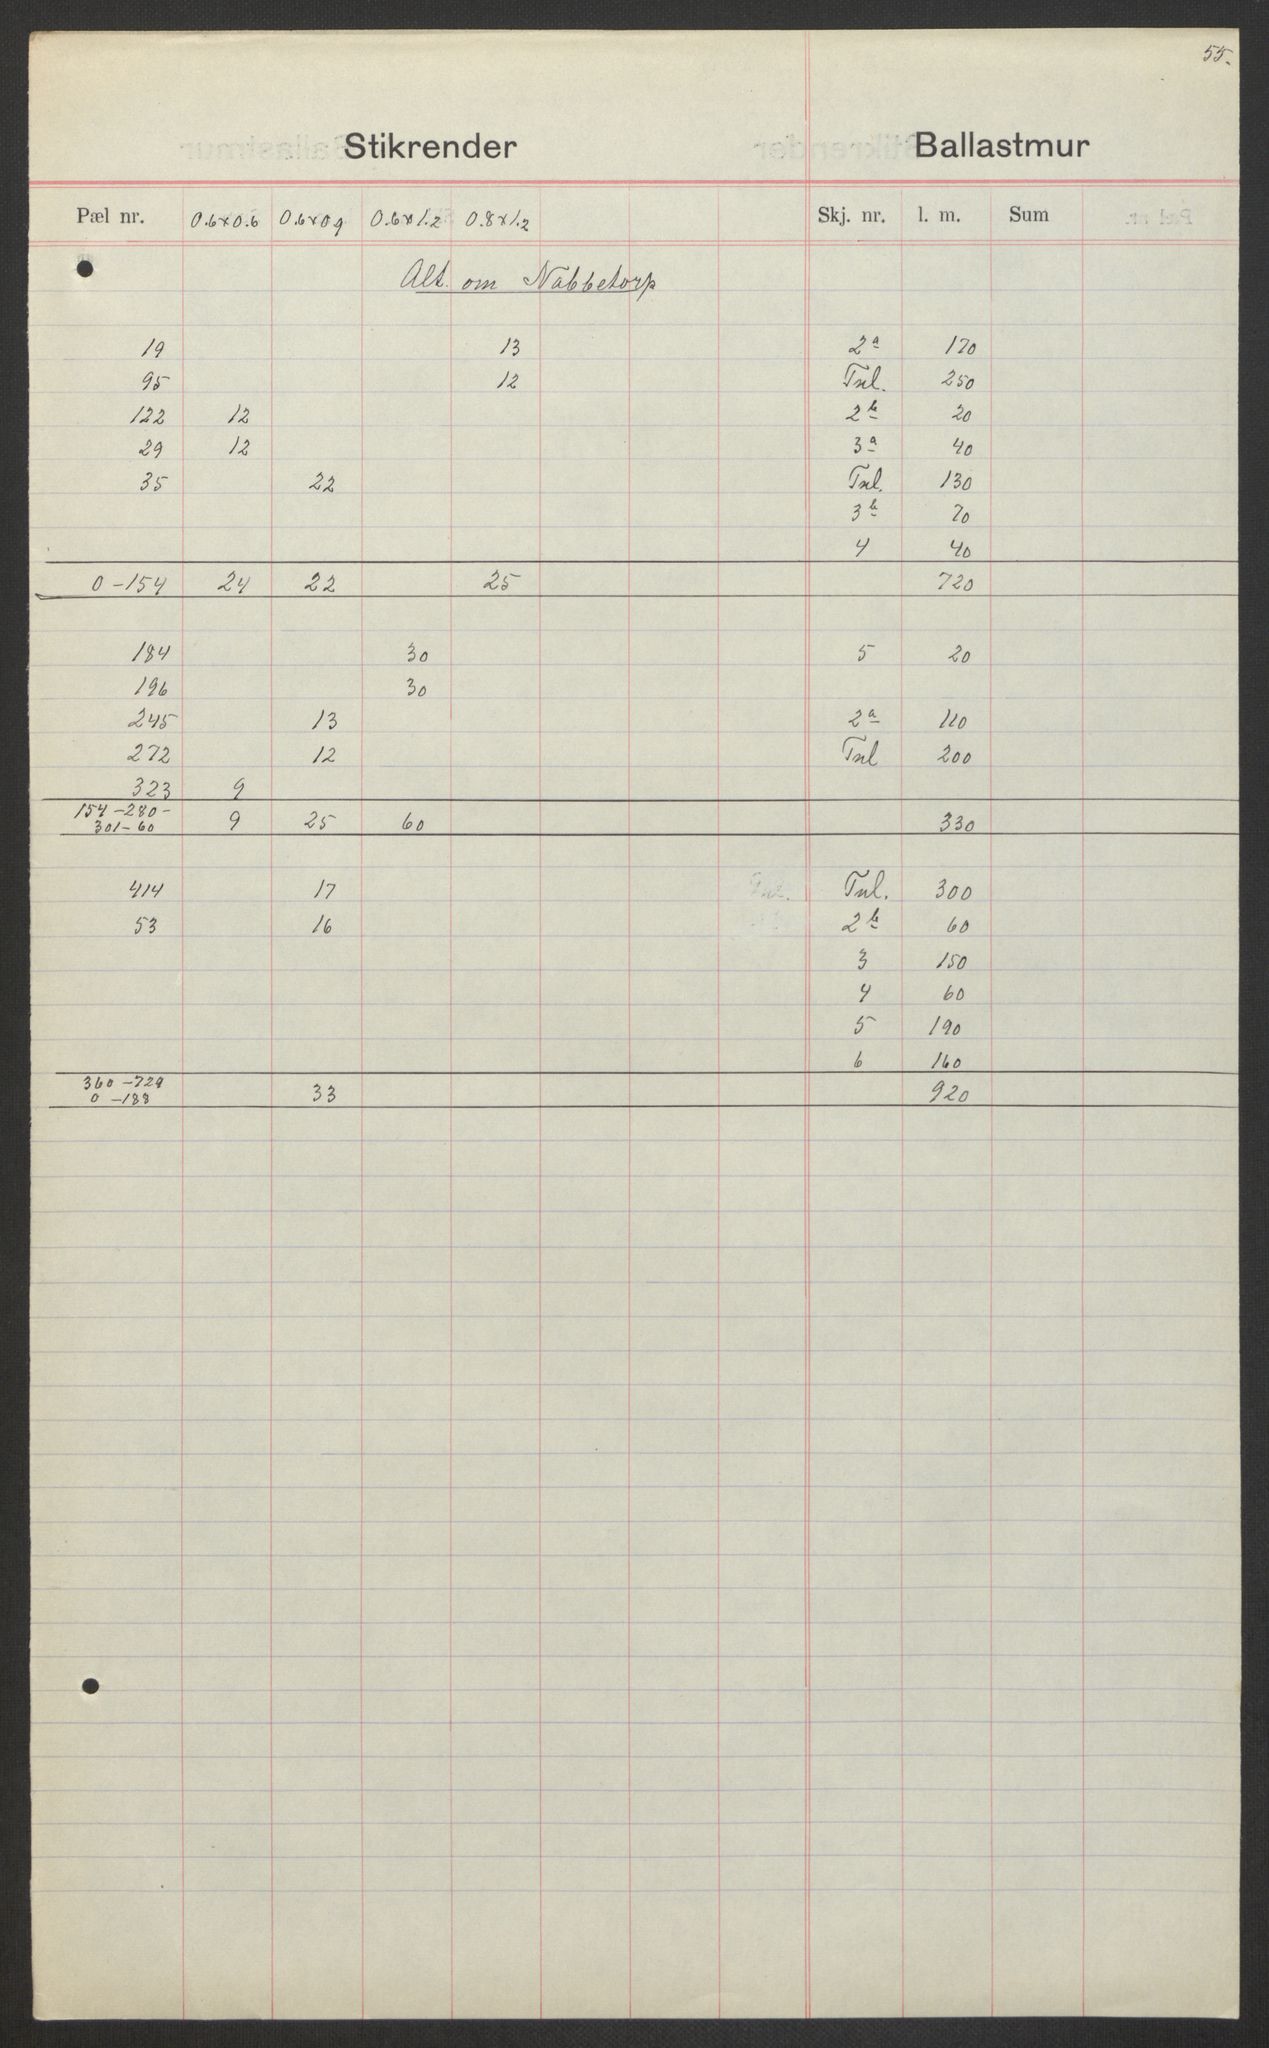 55.
Stikrender Ballastmur
Pæl nr. 0.6x0.6 0.6x0.9 0.6x1.2 0.8x1.2 Skj. nr. l. m. Sum
Alt. om Nabbetorp
19 13 2a 170
95 12 Tnl. 250
122 12 2b 20
29 12 3a 40
35 22 Tnl. 130
3b 70
4 40
0-154 24 22 25 720
184 30 5 20
196 30
245 13 2a 110
272 12 Tnl 200
323 9
154-280-
301-60 9 25 60 330
414 17 Tnl. 300
53 16 2b 60
3 150
4 60
5 190
6 160
360-729
0-188 33 920